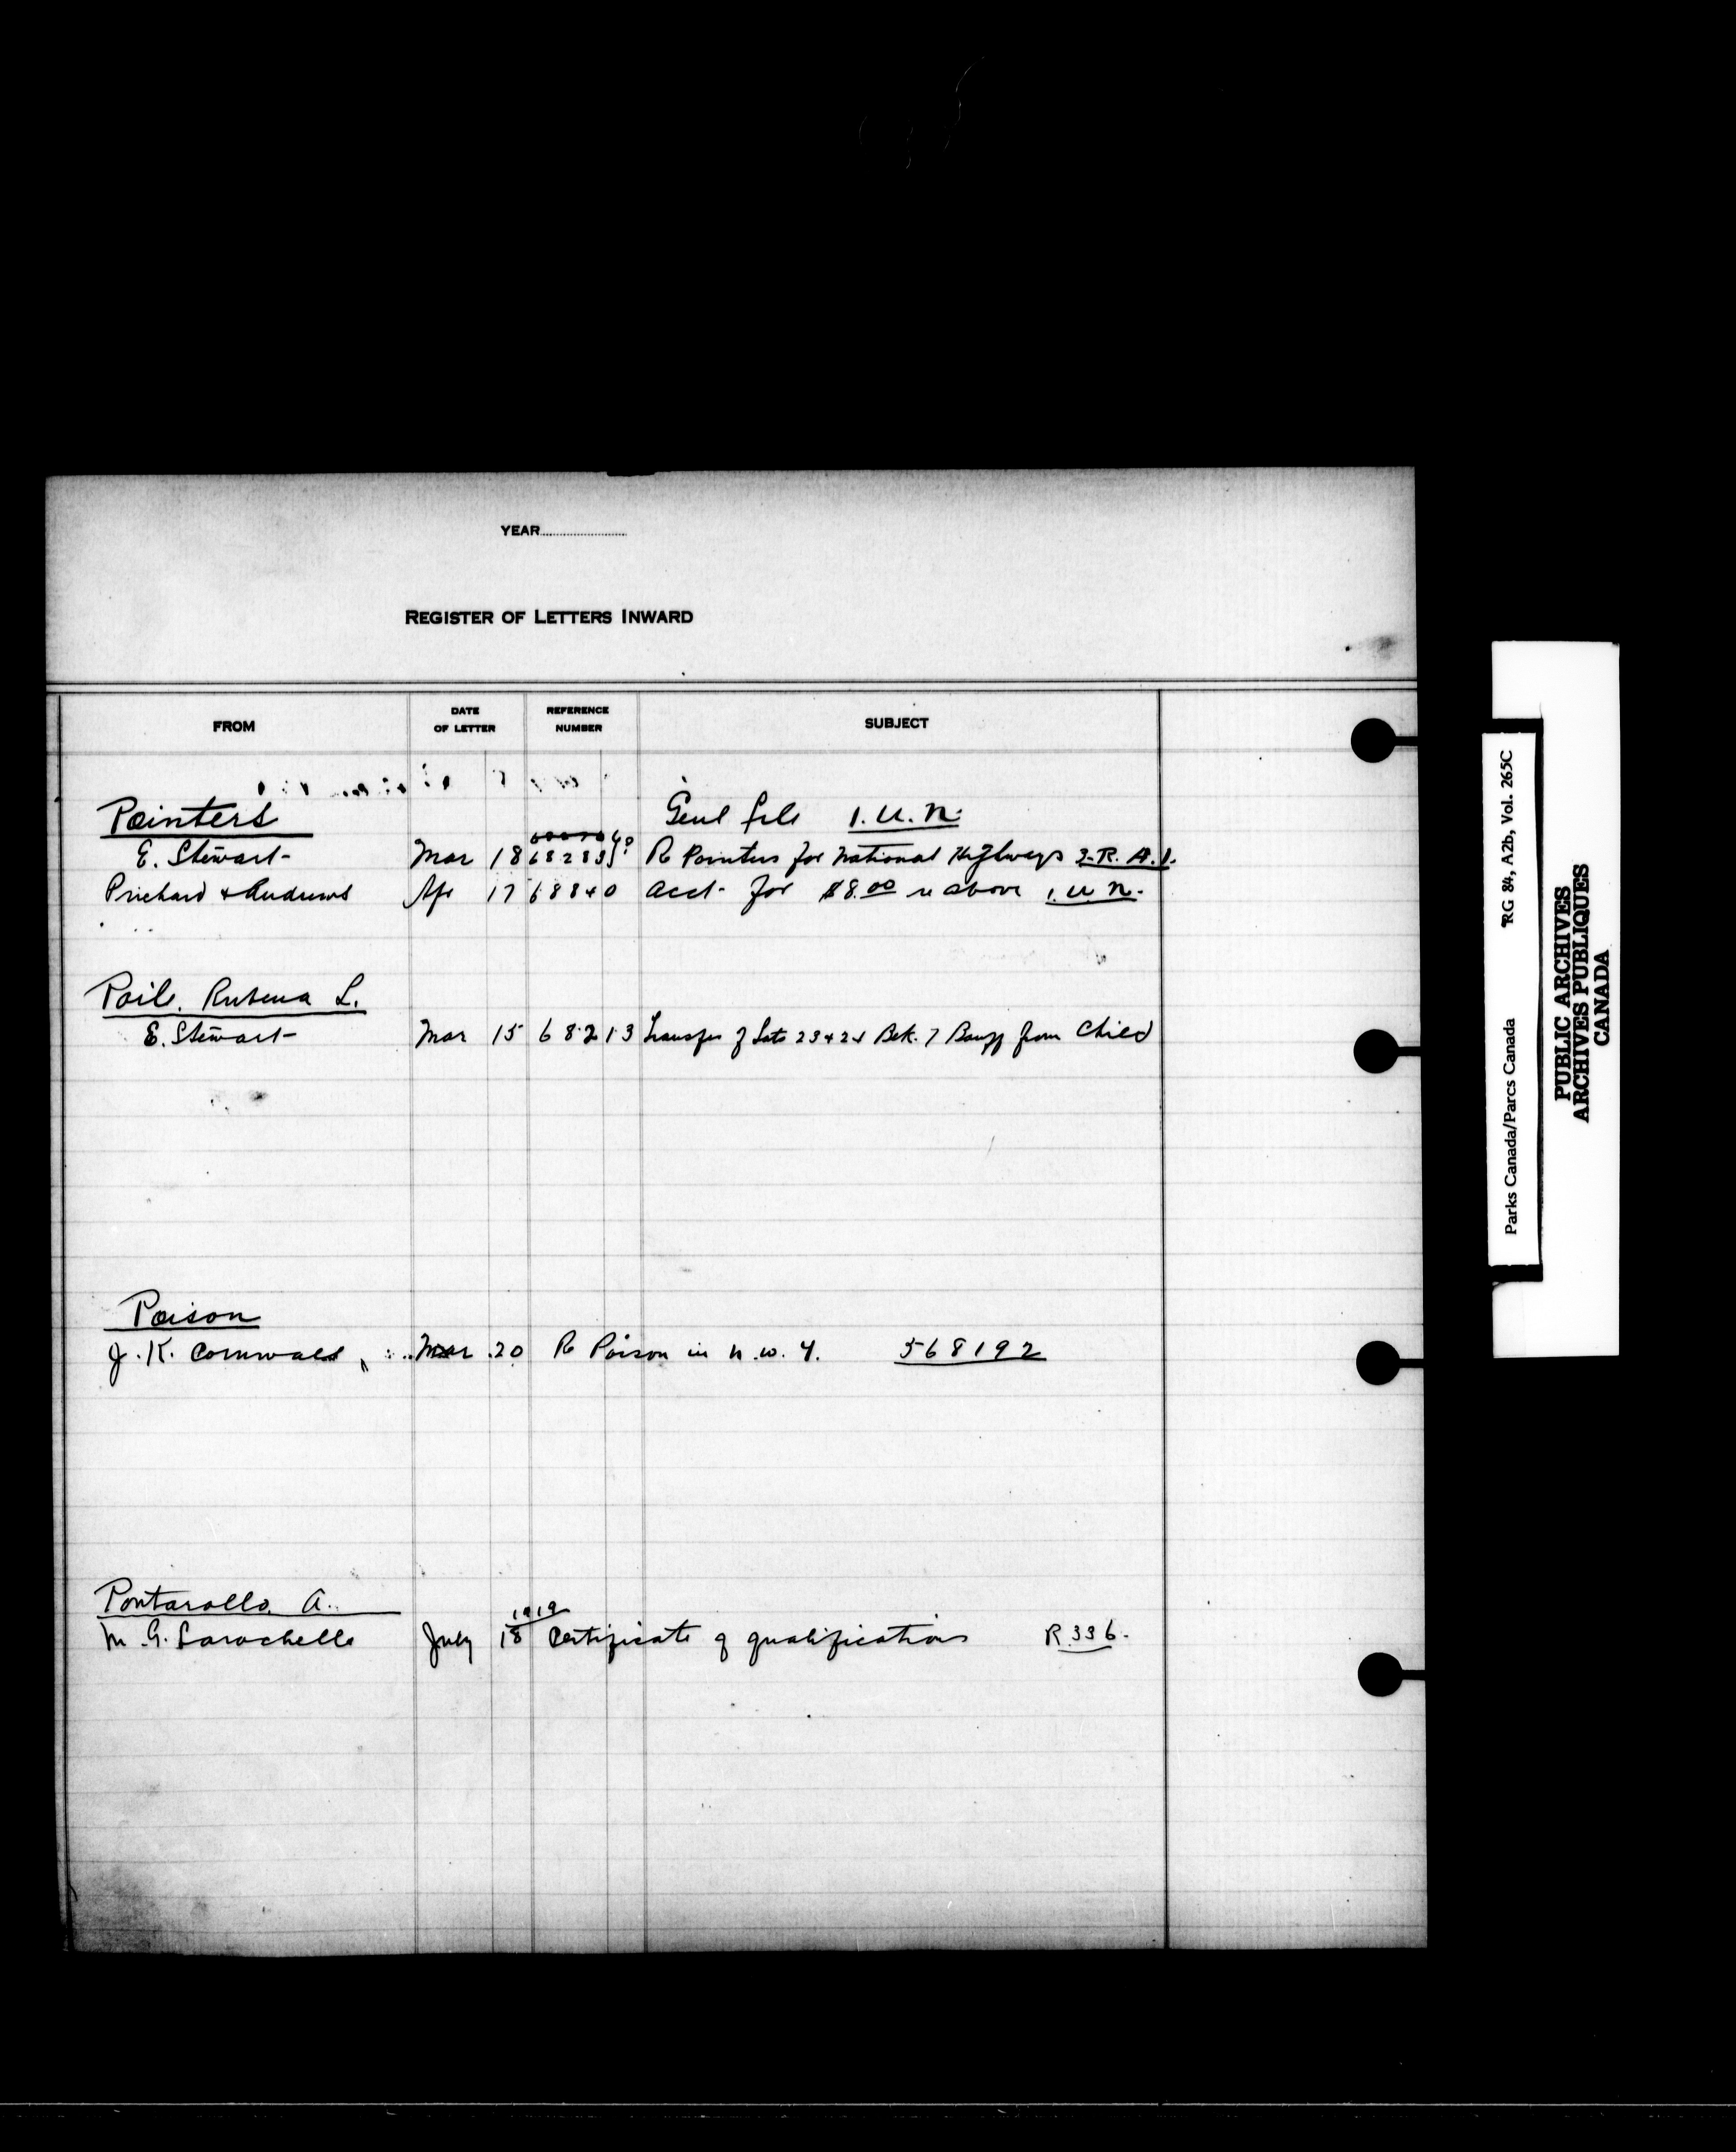 YEAR
REGISTER OF LETTERS INWARD
FROM DATE OF LETTER REFERENCE NUMBER SUBJECT
Pointers Genl file 1.U.N.
E. Stewart Mar 18 68283 Re Pointers for National Highways 3.R.A.1.
Prichard & Andrews Apr 17 68840 acct for $8.00 re above 1.U.N.
Poile. Rubena L.
E. Stewart Mar 15 68213 Transfer of Lots 23 & 24 Blk. 7 Banff from Child
Poison
J. K. Cornwall Mar 20 Re Poison in N.W.Y. 568192
Pontarollo. A.
1919
M. G. Larochelle July 18 Certificate of qualifications R.336.
Parks Canada/Parcs Canada RG 84, A2b, Vol. 265C
PUBLIC ARCHIVES
ARCHIVES PUBLIQUES
CANADA